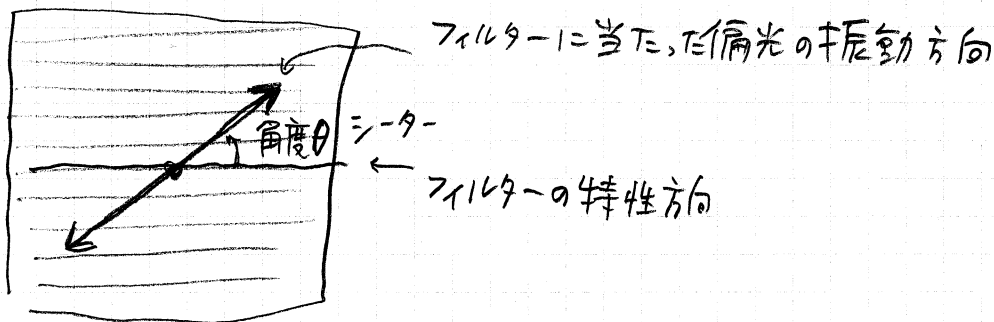 フィルターに当たった偏光の振動方向
角度θ シーター
フィルターの特性方向